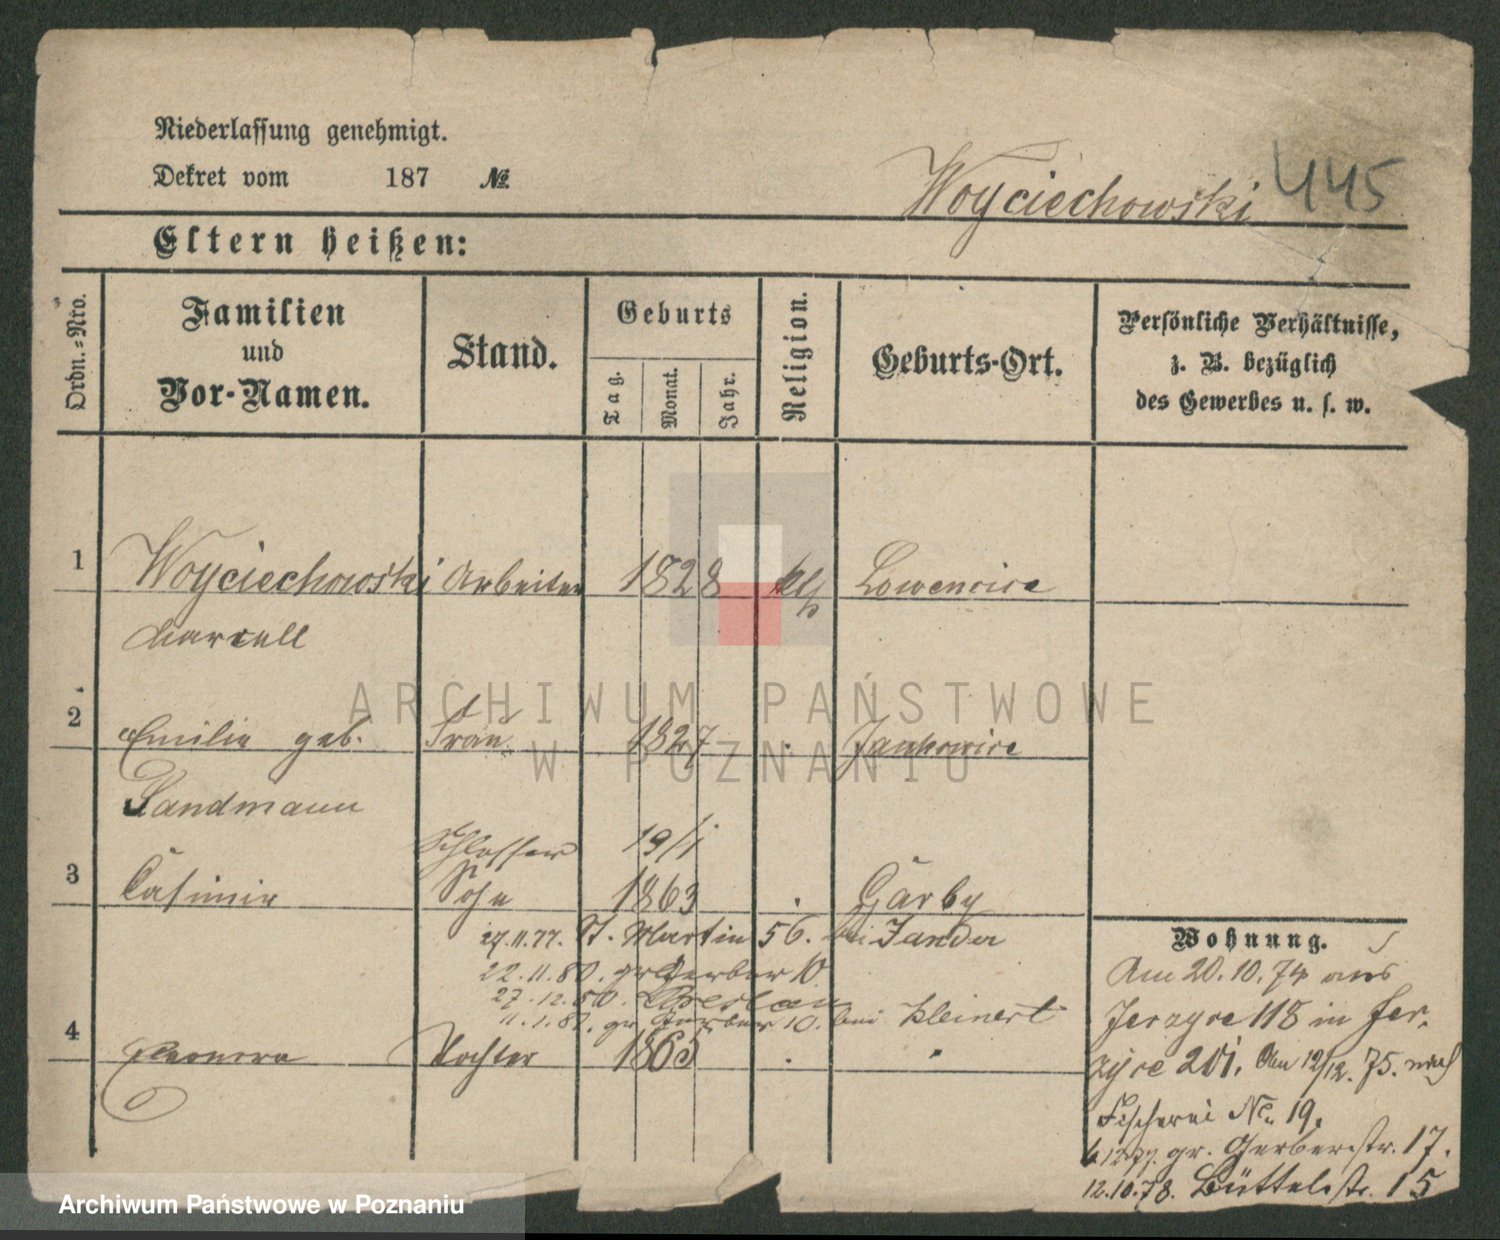 Niederlassung genehmigt.
Dekret vom 187 №
Woyciechowski 445
Eltern heißen:
Ordn.-Nro.
Familien
und
Vor-Namen.
Stand.
Geburts
Tag.
Monat.
Jahr.
Religion.
Geburts-Ort.
Persönliche Verhältnisse,
z. B. bezüglich
des Gewerbes u. s. w.
1 Woyciechowski Arbeiter 1828 kth Lowencice
Marcell
2 Emilie geb. Frau 1827 Jankowice
Sandmann
Schlosser 19/1
3 Casimir Sohn 1863 Garby
27.11.77. St. Martin 56. bei Jander
22.11.80. gr Gerber 10
27.12.80.
11.1.81. gr. Gerber 10. bei Kleinert
4 Eleonora Tochter 1865
Wohnung.
Am 20.10.74 aus
Jerzyce 118 in Jer,
zyce 201. Am 12/12.75. nach
Fischerei No 19.
gr. Gerberstr. 17.
12.10.78. Büttelstr. 15
ARCHIWUM PAŃSTWOWE
W POZNANIU
Archiwum Państwowe w Poznaniu